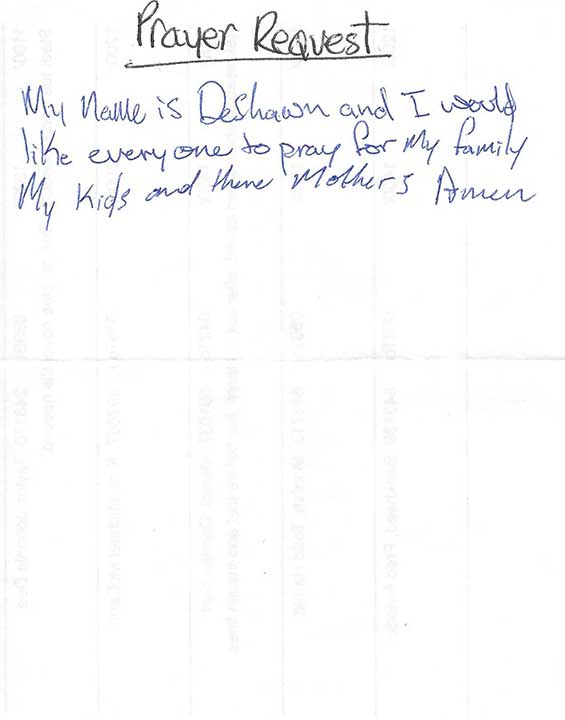 Prayer Request
My Name is Deshawn and I would
like everyone to pray for My family
My Kids and there Mothers Amen